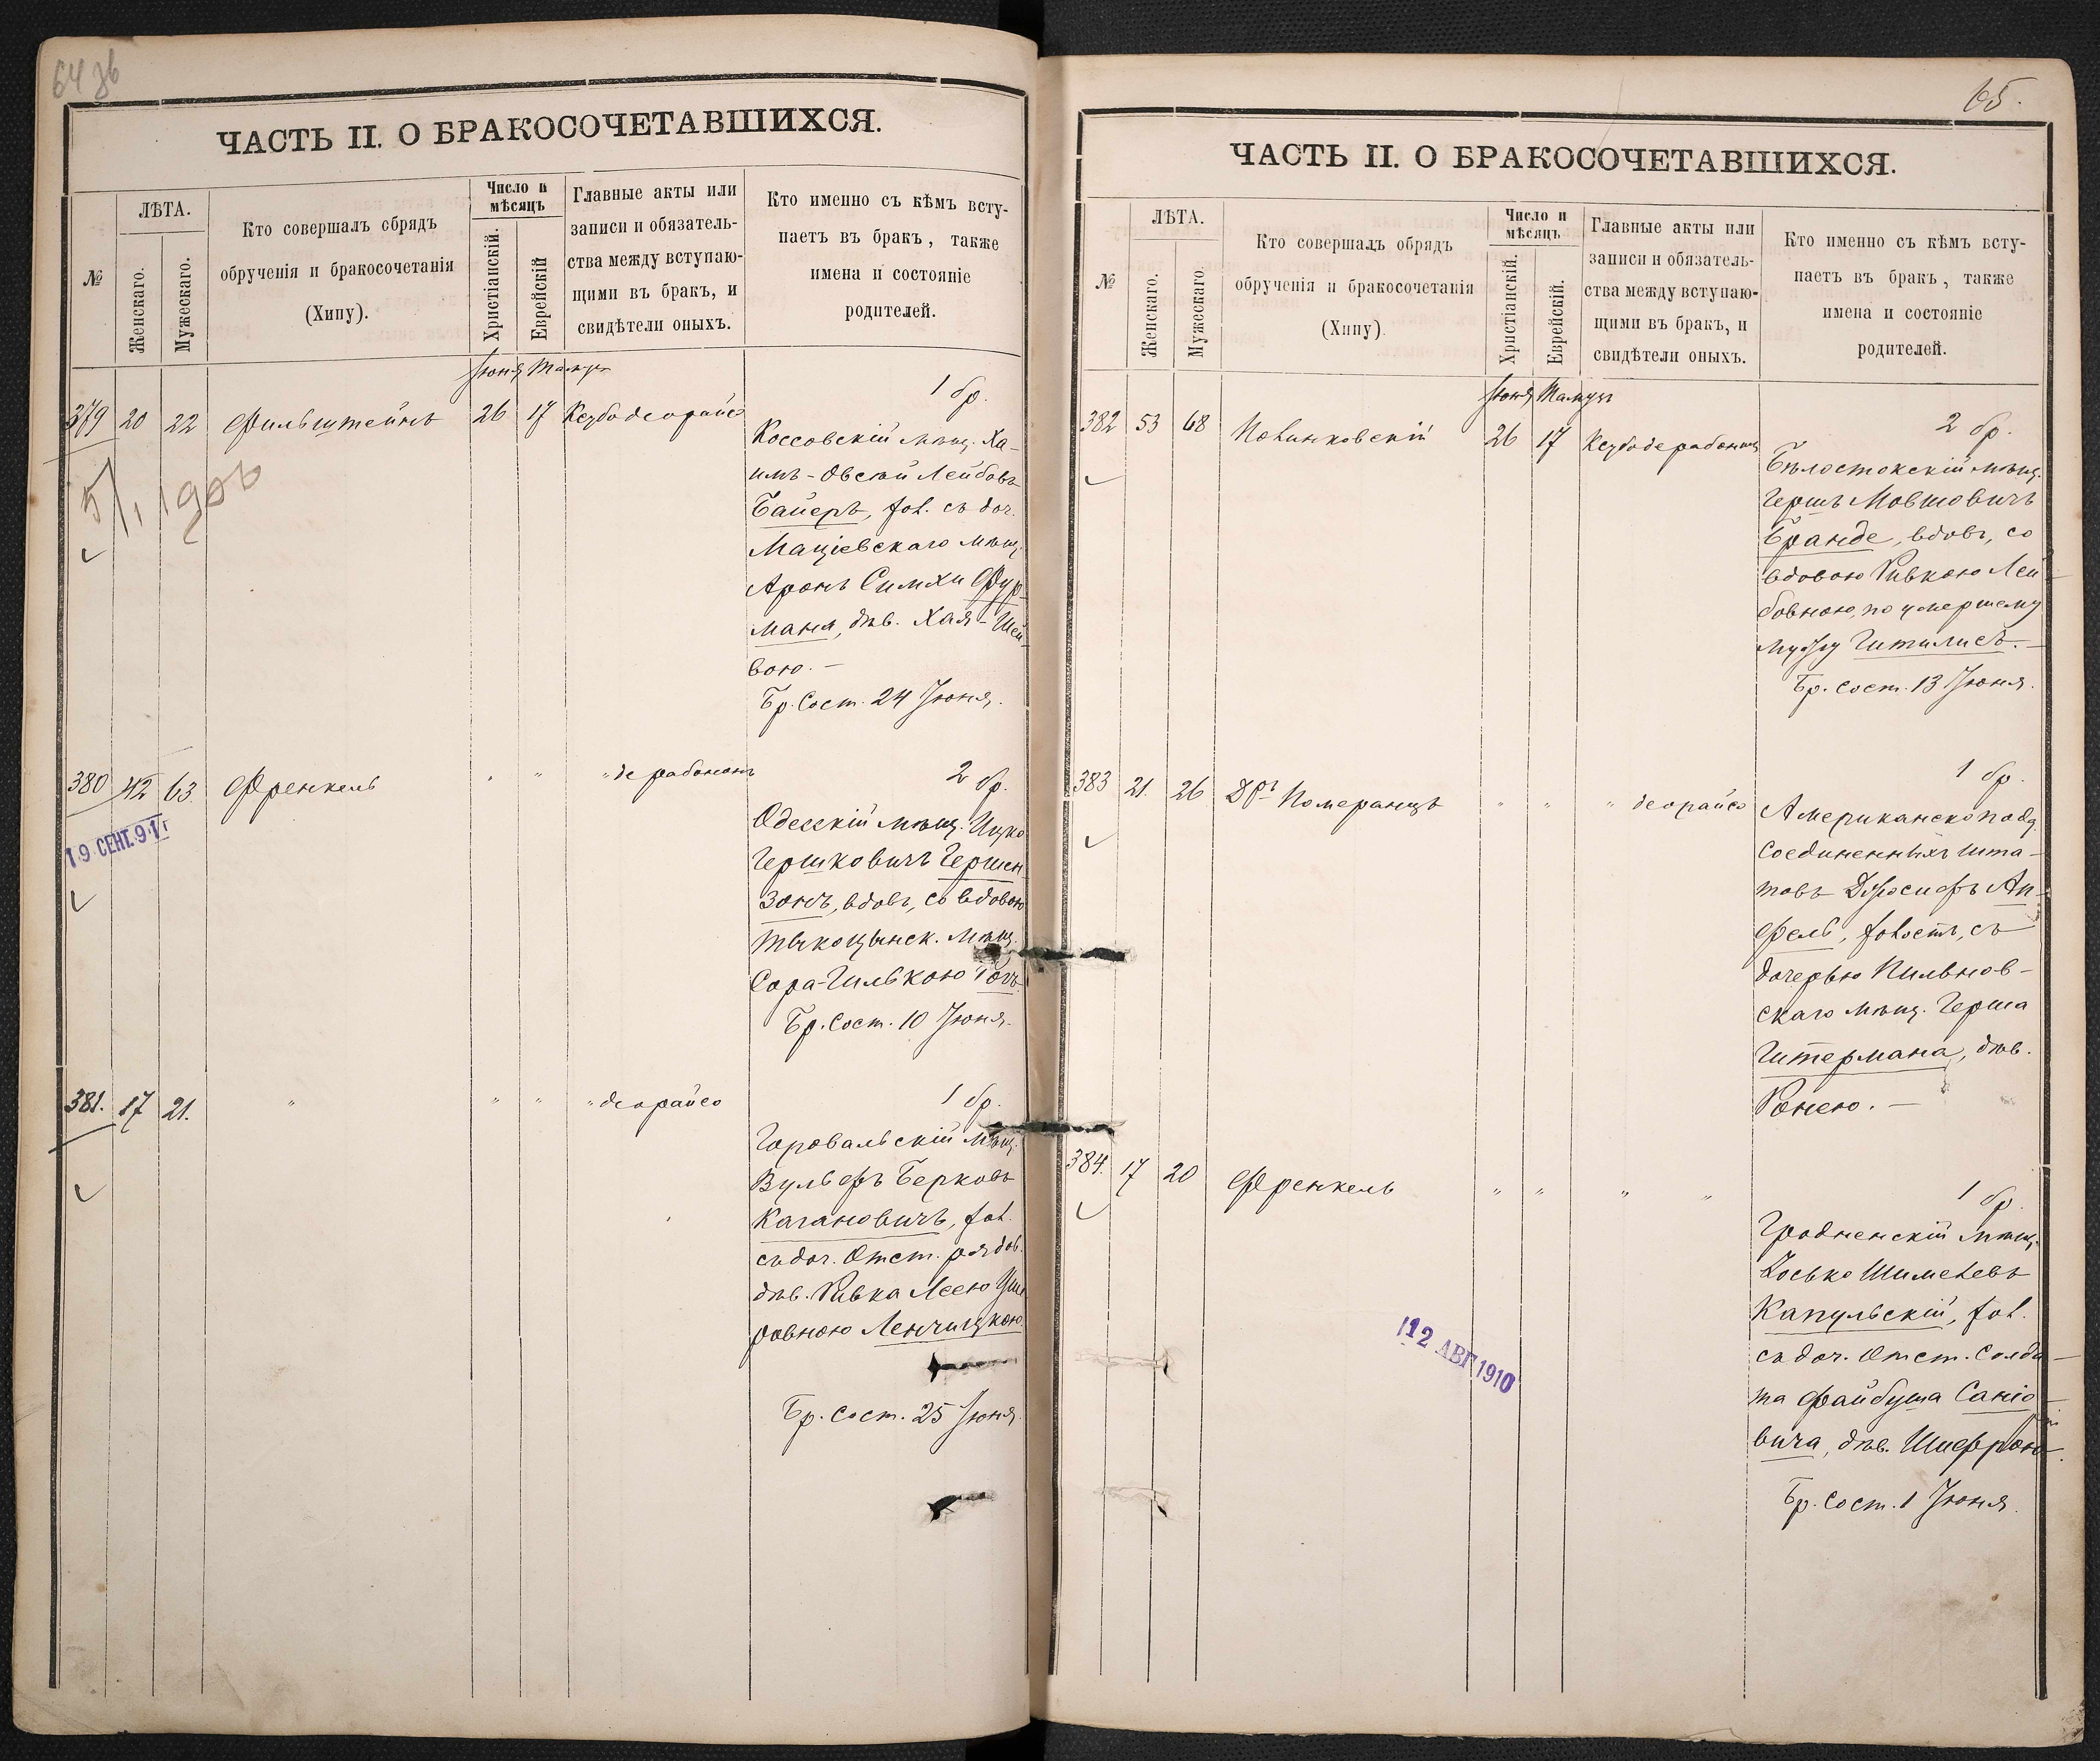 64 об
ЧАСТЬ II. О БРАКОСОЧЕТАВШИХСЯ.
№
ЛѢТА.
Женскаго.
Мужескаго.
Кто совершалъ обрядъ
обрученія и бракосочетанія
(Хипу).
Число и
мѣсяцъ
Христіанскій.
Еврейскій
Главные акты или
записи и обязатель-
ства между вступаю-
щими въ бракъ, и
свидѣтели оныхъ.
Кто именно съ кѣмъ всту-
паетъ въ бракъ, также
имена и состояніе
родителей.
Іюня Тамуз
1 бр.
379 20 22 Фильштейнъ 26 17 Ксубо деорайсо
Коссовскій мѣщ. Ха-
имъ-Овсѣй Лейбовъ
Байеръ, хол. съ доч.
Мацiевскаго мѣщ.
Аронъ Симхи Фур-
мана, дѣв. Хая-Шей-
вою.-
Бр. Сост. 24 Іюня.
5/1 1908
380 42 63 Френкель " " " дерабонон
2 бр.
19 СЕНТ. 91 г
Одесскій мѣщ. Ицко
Гершковичъ Гершен-
зонъ, вдовъ, со вдовою
Тыкоцынск. мѣщ.
Сора-Гилькою
Бр. Сост. 10 Іюня.
381. 17 21. " " " " деорайсо
1 бр.
Горовальскій мѣщ.
Вульфъ Берковъ
Кагановичъ, хол.
съ доч. Отст. рядов.
дѣв. Ривка Леею
ровною Ленчицкою
Бр. сост. 25 Іюня.
65.
ЧАСТЬ II. О БРАКОСОЧЕТАВШИХСЯ.
№
ЛѢТА.
Женскаго.
Мужескаго.
Кто совершалъ обрядъ
обрученія и бракосочетанія
(Хипу)
Число и
мѣсяцъ
Христіанскій.
Еврейскій.
Главные акты или
записи и обязатель-
ства между вступаю-
щими въ бракъ, и
свидѣтели оныхъ.
Кто именно съ кѣмъ всту-
паетъ въ бракъ, также
имена и состояніе
родителей.
Іюня Тамуз
2 бр.
382 53 68 Новинковскій 26 17 Ксубо дерабонон
Бѣлостокскій мѣщ.
Гершъ Мовшовичъ
Бранде, вдовъ, со
вдовою Ривкою Лей-
бовною, по умершему
мужу Гитилисъ.-
Бр. сост. 13 Іюня.
1 бр.
383 21. 26 Д-ръ Померанцъ " " " деорайсо
Американскоподд.
Соединенныхъ Шта-
товъ Джосифъ Ап-
фель, холостъ, съ
дочерью Пильнов-
скаго мѣщ. Герша
Гитермана, дѣв.
Ронею.-
384. 17 20 Френкель " " " "
1 бр.
Гродненскій мѣщ.
Іосько Шимелевъ
Капульскій, хол.
съ доч. Отст. Солда-
та Файбуша Саніо-
вича, дѣв. Шифрою.
Бр. Сост. 1 Іюня.
12 АВГ 1910